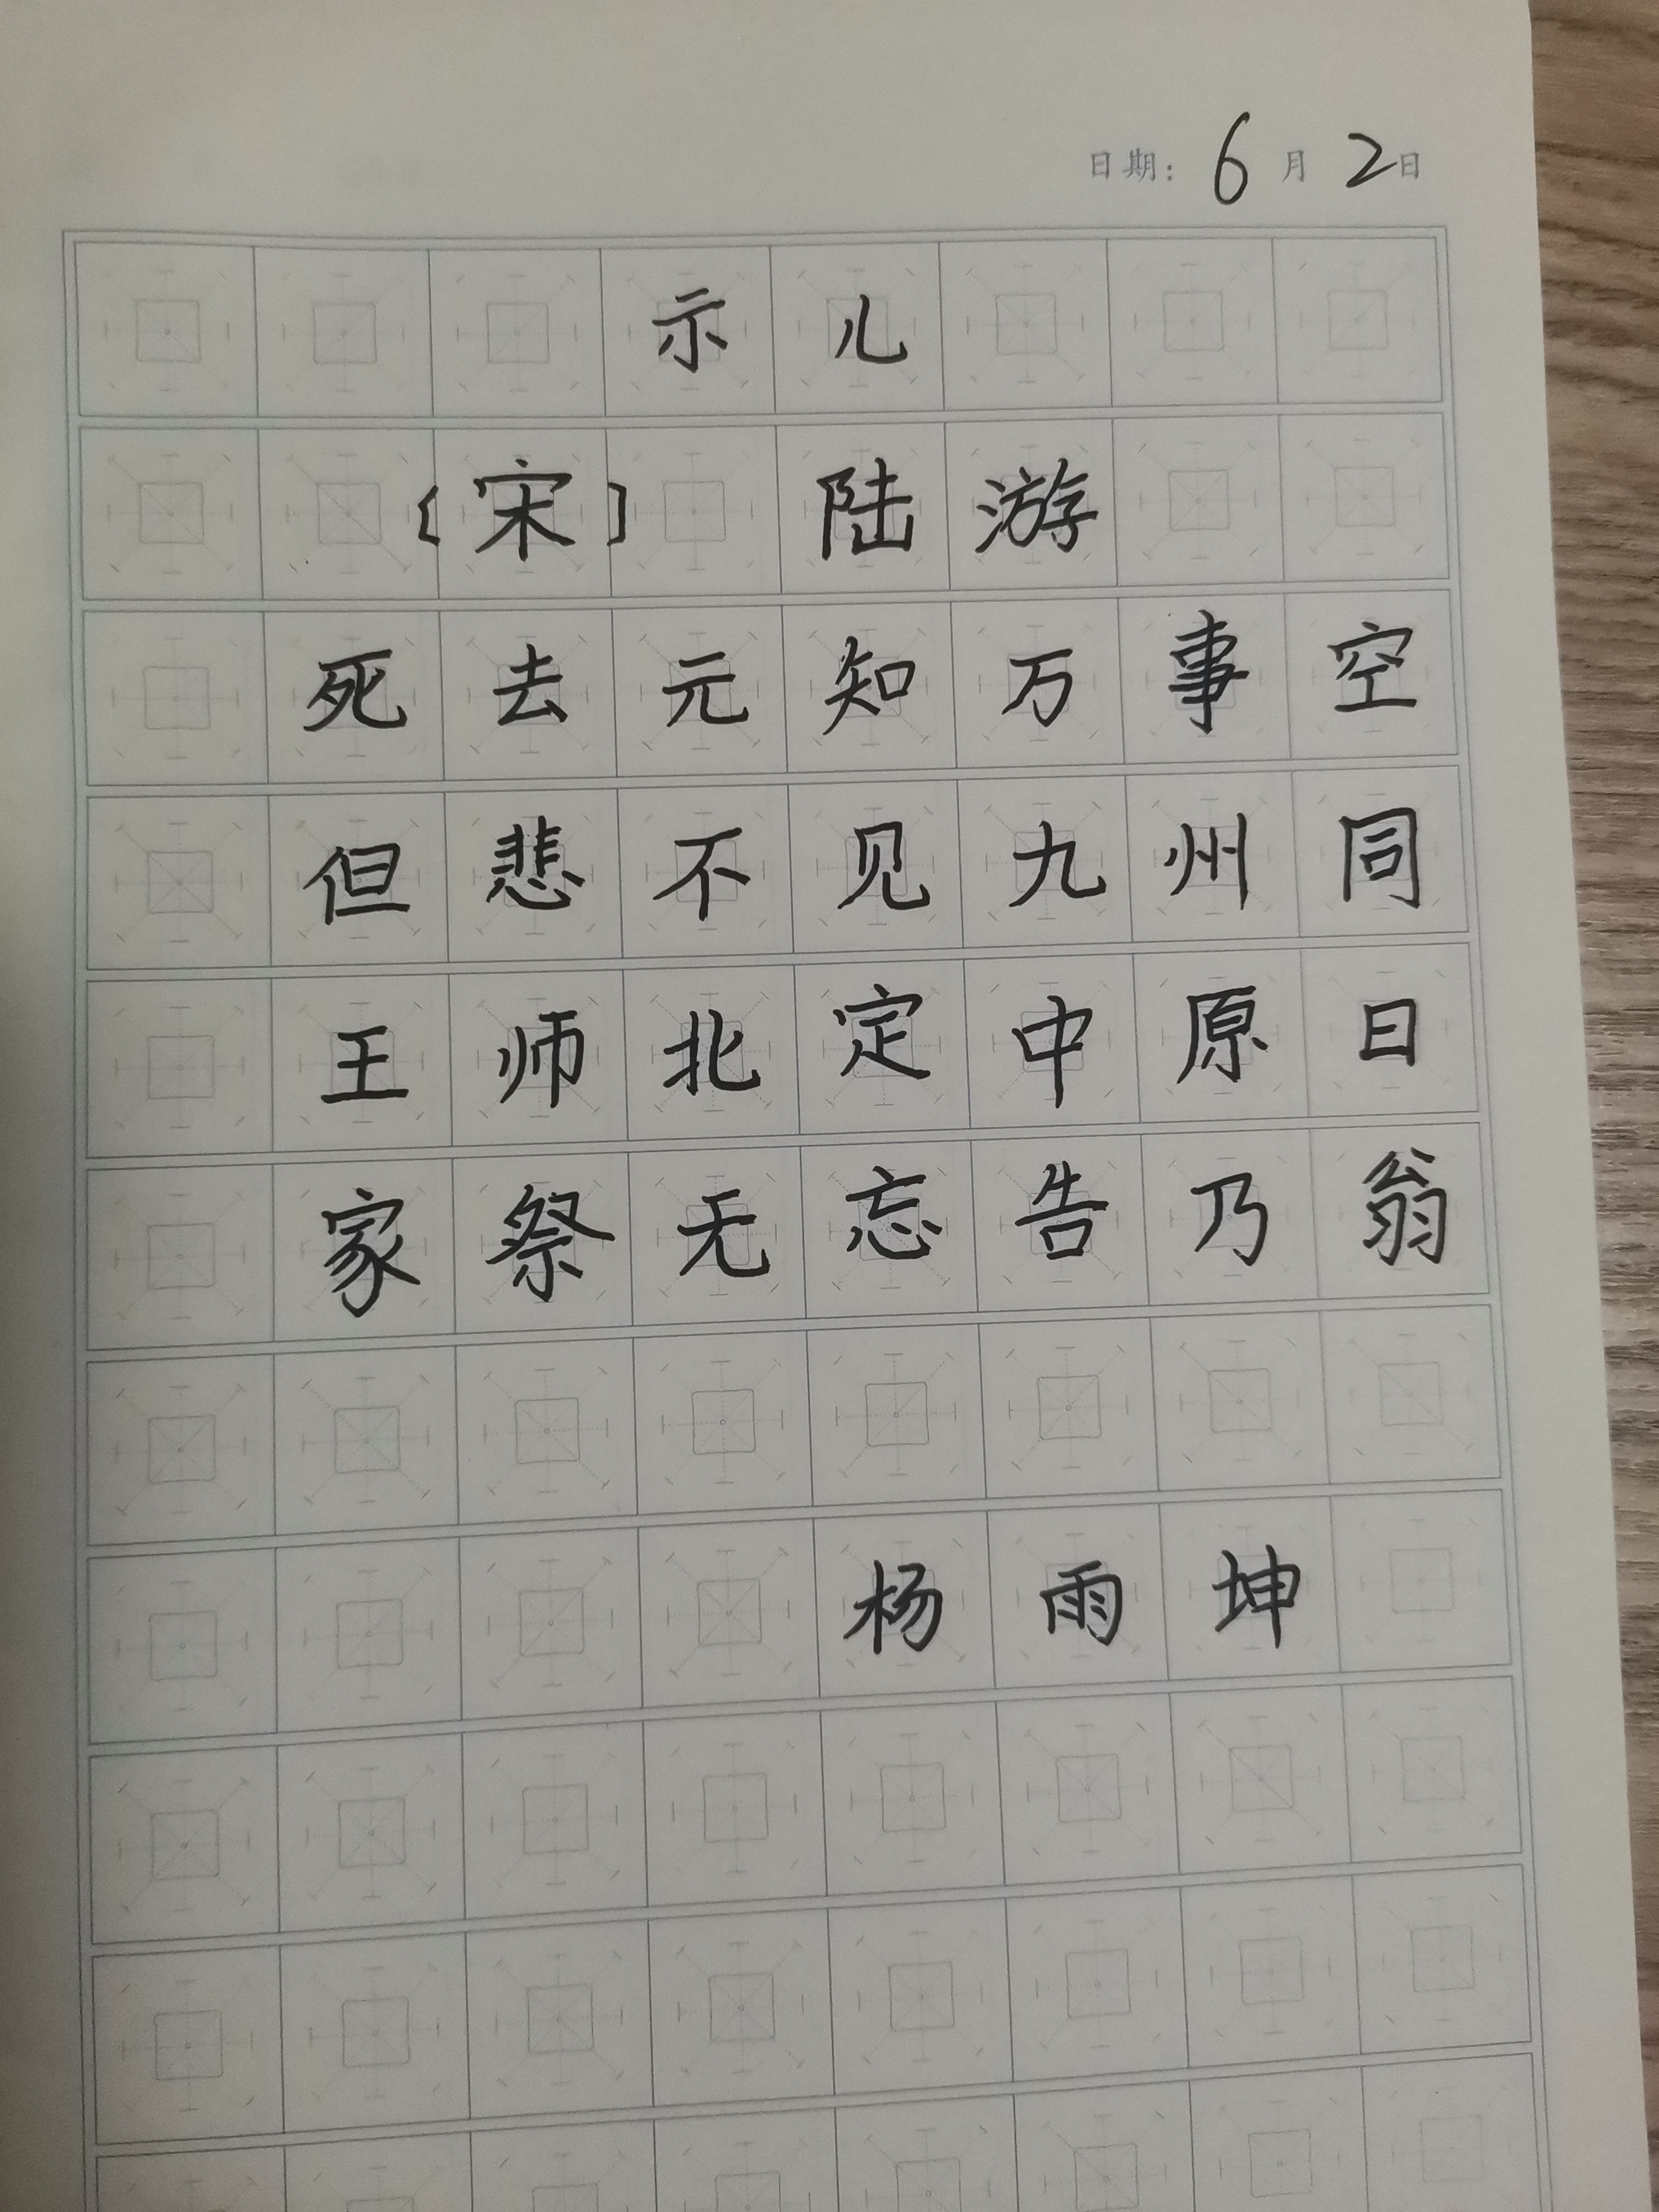 日期：6月2日
示儿
［宋］ 陆游
死去元知万事空
但悲不见九州同
王师北定中原日
家祭无忘告乃翁
杨雨坤